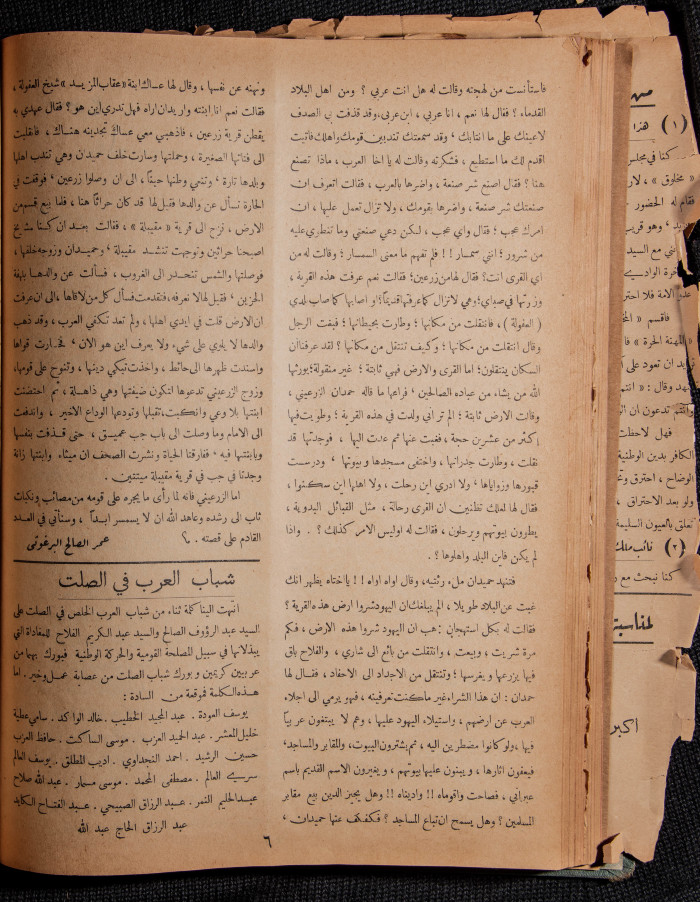 فاستأنست من لهجته وقالت له هل انت عربي ؟ ومن اهل البلاد
القدماء ؟ فقال لها نعم ، انا عربي ، ابن عربي، وقد قذفت بي الصدف
لاعينك على ما انتابك ، وقد سمعتك تندبين قومك واهلك فأتيت
اقدم لك ما استطيع ، فشكرته وقالت له يا اخا العرب ، ماذا تصنع
هنا ؟ فقال اصنع شر صنعة ، واضرها بالعرب ، فقالت اتعرف ان
صنعتك شر صنعة ، واضرها بقومك ، ولا تزال تعمل عليها ، ان
امرك عجب ؛ فقال واي عجب ، لكن دعي صنعتي وما تنطري عليه
من شرور ؛ انني سمسار !! فلم تفهم ما معنى السمسار ؛ وقالت له من
اي القرى انت؟ فقال لها من زرعين؛ فقالت نعم عرفت هذه القرية ،
وزرتها في صباي؛ وهي لاتزال كما عرفتها قديماً؟او اصابها كما صاب بلدي
( العفولة ) ، فانتقلت من مكانها ؛ وطارت بحيطانها ؛ فبهت الرجل
وقال انتقلت من مكانها ؛ وكيف تنتقل من مكانها ؟ لقد عرفنا ان
السكان ينتقلون؛ اما القرى والارض فهي ثابتة ؛ غير منقولة؛ يورثها
الله من يشاء من عباده الصالحين ، فراعها ما قاله حمدان الزرعيني ،
وقالت الارض ثابتة ؛ الم تراني ولدت في هذه القرية ؛ وطويت فيها
اكثر من عشرين حجة ، فغبت عنها ثم عدت اليها ، فوجدتها قد
نقلت ، وطارت جدرانها ، واختفى مسجدها وبيوتها ، ودرست
قبورها وزواياها ، ولا ادري اين رحلت ، ولا اهلها اين سكنوا ،
فقال لها لعلك تظنين ان القرى رحالة ، مثل القبائل البدوية ،
يطوون بيوتهم ويرحلون ، فقالت له اوليس الامر كذلك ؟ . واذا
لم يكن فاين البلد واهلوها ؟ .
فتنهد حميدان ملء رئتيه ، وقال اواه اواه !! يا اختاه يظهر انك
غبت عن البلاد طويلا ، الم يبلغك ان اليهود شروا ارض هذه القرية ؟
فقالت له بكل استهجان : هب ان اليهود شروا هذه الارض ، فكم
مرة شريت ، وبيعت ، وانتقلت من بائع الى شاري ، والفلاح باق
فيها يزرعها ويغرسها ؛ وتنتقل من الاجداد الى الاحفاد ، فقال لها
حمدان : ان هذا الشراء غير ما كنت تعرفينه ، فهو يرمي الى اجلاء
العرب عن ارضهم ، واستيلاء اليهود عليها ، وهم لا يبتغون عربياً
فيها ، ولو كانوا مضطرين اليه ، ثم يشترون البيوت، والمقابر والمساجد،
فيعفون اثارها ، ويبنون عليها بيوتهم ، ويغيرون الاسم القديم باسم
عبراني ، فصاحت واقوماه !! واديناه !! وهل يجيز الدين بيع مقابر
المسلمين ؟ وهل يسمح ان تباع المساجد ؟ فكفكف عنها حميدان ،
ونهنه عن نفسها ، وقال لها عساك ابنة « عقاب المزيد » شيخ العفولة ،
فقالت نعم انا ابنته واريد ان اراه فهل تدري اين هو ؟ فقال عهدي به
يقطن قرية زرعين ، فاذهبي معي عساك تجدينه هناك ، فانقلبت
الى فتاتها الصغيرة ، وحملتها وسارت خلف حميدان وهي تندب اهلها
وبلدها تارة ، وتنعي وطنها حيناً ، الى ان وصلوا زرعين ، فوقفت في
الحارة تسأل عن والدها فقيل لها قد كان حراثا هنا ، فلما بيع قسم من
الارض ، نزح الى قرية « مقيبلة » ، فقالت بعد ان كنا مشايخ
اصبحنا حراثين وتوجهت تنشد مقيبلة ، وحميدان وزوجه خلفها ،
فوصلتها والشمس تنحدر الى الغروب ، فسألت عن والدها بلهفة
الحزين ، فقيل لها لا نعرفه، فتقدمت فسأل كل من لاقاها ، الى ان عرفت
ان الارض قلت في ايدي اهلها ، ولم تعد تكفي العرب ، وقد ذهب
والدها لا يلوي على شيء ولا يعرف اين هو الان ، فخارت قواها
واسندت ظهرها الى حائط ، واخذت تبكي دينها ، وتنوح على قومها،
وزوج الزرعيني تدعوها لتكون ضيفتها وهي ذاهلة ، ثم احتضنت
ابنتها بلا وعي وانكبت تقبلها وتودعها الوداع الاخير ، واندفعت
الى الامام وما وصلت الى باب جب عميق ، حتى قذفت بنفسها
وبابنتها فيه ، ففارقتا الحياة ونشرت الصحف ان ميثاء وابنتها زانة
وجدتا في جب في قرية مقيبلة ميتتين .
اما الزرعيني فانه لما رأى ما يجره على قومه من مصائب ونكبات
ثاب الى رشده وعاهد الله ان لا يسمسر ابداً ، وسنأتي في العدد
القادم على قصته . ؟
عمر الصالح البرغوثي
شباب العرب في الصلت
انتهت الينا كلمة ثناء من شباب العرب الخلص في الصلت على
السيد عبد الرؤوف الصالح والسيد عبد الكريم الفلاح للمغاداة التي
يبذلانها في سبيل المصلحة القومية والحركة الوطنية فبورك بهما من
عربيين كريمين وبورك شباب الصلت من عصابة عمل وخير . اما
هذه الكلمة فموقعة من السادة :
يوسف العودة . عبد المجيد الخطيب . خالد الواكد . سامي عطية
خليل المعشر . عبد الحميد العزب . موسى الساكت . حافظ العزب
حسين الرشيد . احمد النجداوي . اديب المطلق . يوسف العالم
سري العالم . مصطفى المحمد . موسى مسمار . عبد الله صلاح
عبد الحليم النمر . عبد الرزاق الصبيحي . عبد الفتاح الكايد
عبد الرزاق الحاج عبد الله
٦
( ١ ) هذا
كنا في مجلس
« مخلوق » ، لار
فقام له الحضور
فاقسم
( ٢ ) نائب ملك
كنا نبحث مع
لمناسبة
اكبر